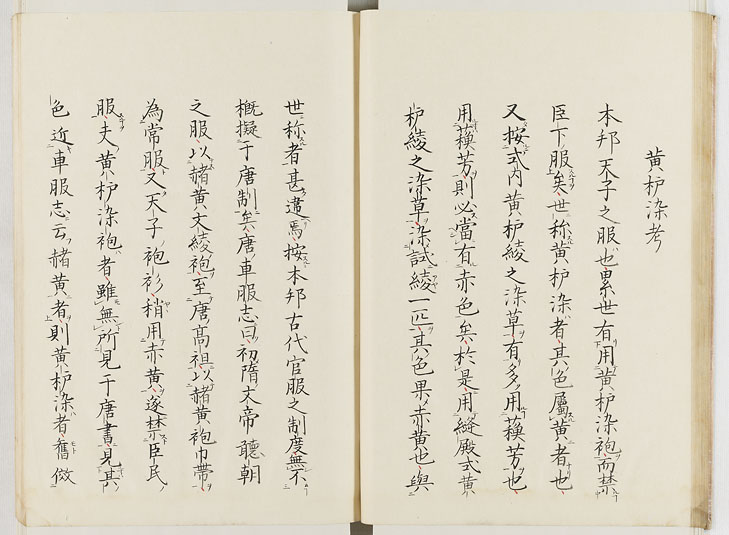 黄櫨染考
本邦天子之服也累世有用黄櫨染袍而禁
臣下服矣世称黄櫨染者其色屬黄者也
又按式内黄櫨綾之染草有多用蘓芳也
用蘓芳則必當有赤色矣於是用縫殿式黄
櫨綾之染草染試綾一匹其色果赤黄也與
世称者甚違焉按本邦古代官服之制度無不
概擬于唐制矣唐車服志曰初隋文帝聴朝
之服以赭黄文綾袍至唐高祖以赭黄袍巾帯
為常服又天子袍衫稍用赤黄遂禁臣民
服夫黄櫨染袍者雖無所見于唐書見其
色近車服志云赭黄者則黄櫨染者舊倣